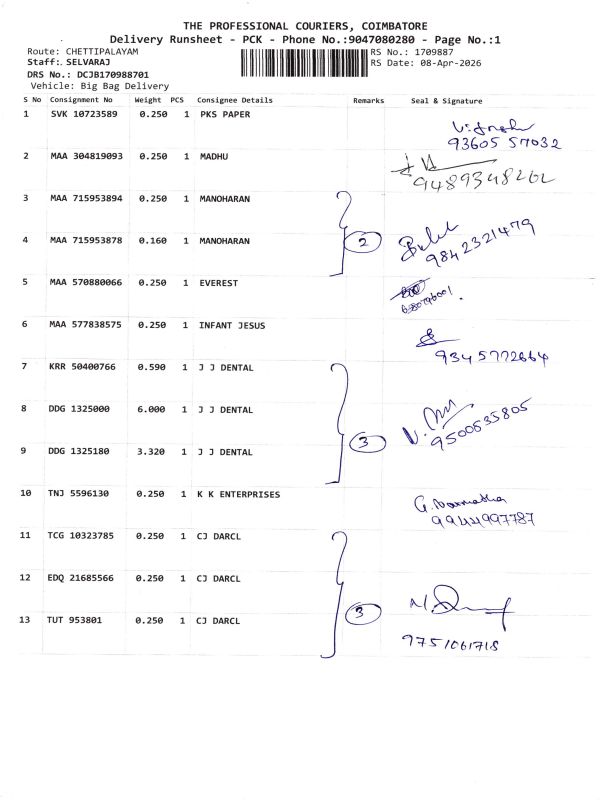 THE PROFESSIONAL COURIERS, COIMBATORE
Delivery Runsheet - PCK - Phone No.:9047080280 - Page No.:1
Route: CHETTIPALAYAM
RS No.: 1709887
Staff: SELVARAJ
RS Date: 08-Apr-2026
DRS No.: DCJB170988701
Vehicle: Big Bag Delivery
S No Consignment No Weight PCS Consignee Details Remarks Seal & Signature
1 SVK 10723589 0.250 1 PKS PAPER
93605 57032
2 MAA 304819093 0.250 1 MADHU
3 MAA 715953894 0.250 1 MANOHARAN
4 MAA 715953878 0.160 1 MANOHARAN 2
9842321479
5 MAA 570880066 0.250 1 EVEREST
6 MAA 577838575 0.250 1 INFANT JESUS
9345772664
7 KRR 50400766 0.590 1 J J DENTAL
8 DDG 1325000 6.000 1 J J DENTAL
3
9500635805
9 DDG 1325180 3.320 1 J J DENTAL
10 TNJ 5596130 0.250 1 K K ENTERPRISES
9944997787
11 TCG 10323785 0.250 1 CJ DARCL
12 EDQ 21685566 0.250 1 CJ DARCL
3
13 TUT 953801 0.250 1 CJ DARCL
9751061718